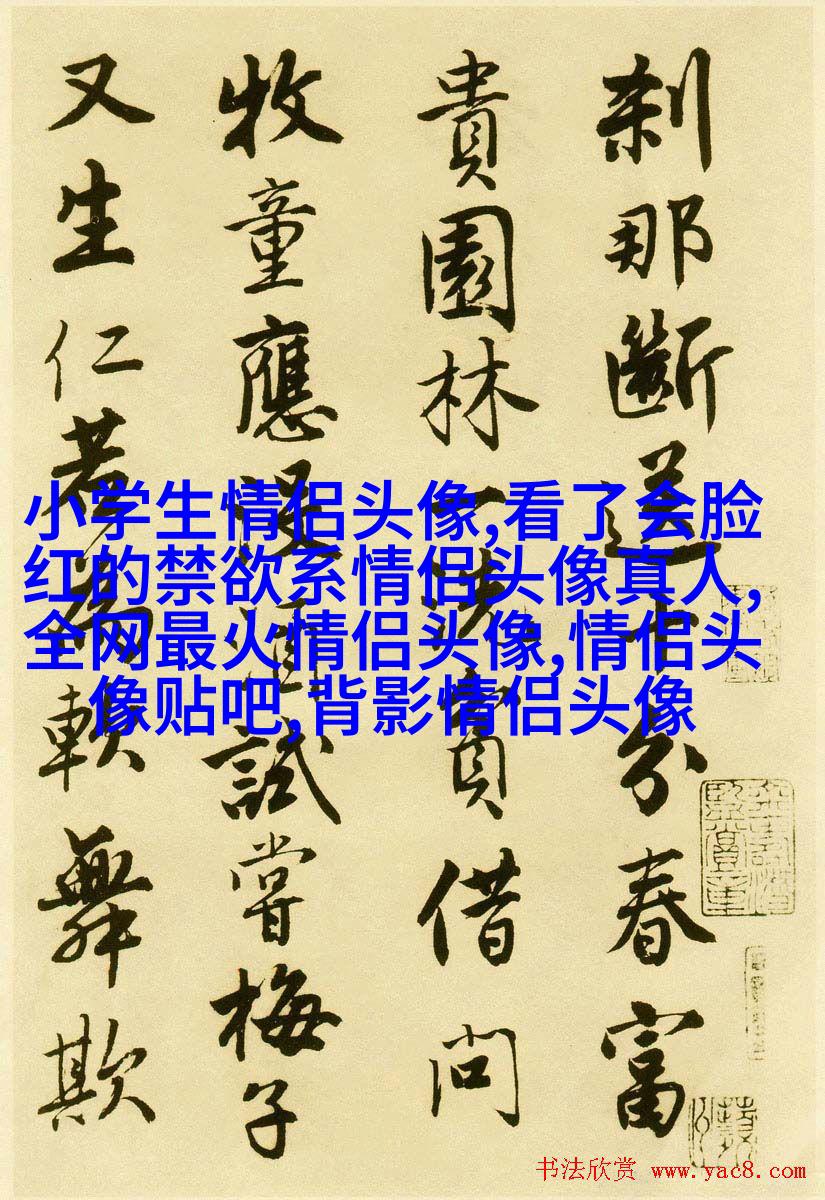 刹那斷送十分春富
貴園林一洗貧借問
牧童應沒酒試嘗梅子
又生仁若為軟舞欺
小学生情侣头像,看了会脸
红的禁欲系情侣头像真人,
全网最火情侣头像,情侣头
像贴吧,背影情侣头像
书法欣赏 www.yac8.com